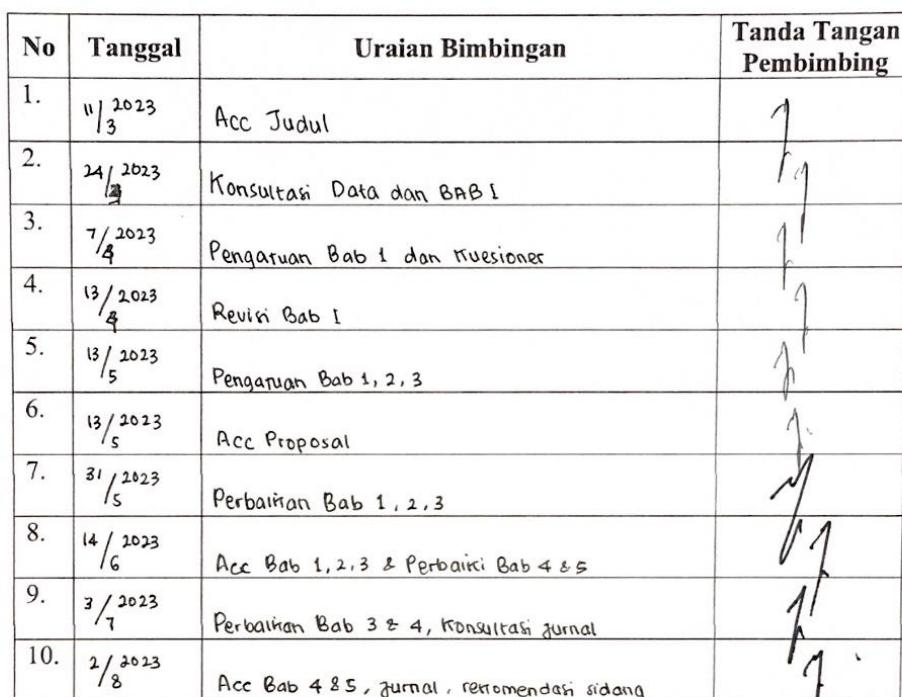 No Tanggal Uraian Bimbingan Tanda Tangan Pembimbing
1. 11/3 2023 Acc Judul
2. 24/3 2023 Konsultasi Data dan BAB I
3. 7/4 2023 Pengaruan Bab 1 dan Kuesioner
4. 13/4 2023 Revisi Bab I
5. 13/5 2023 Pengaruan Bab 1, 2, 3
6. 13/5 2023 Acc Proposal
7. 31/5 2023 Perbaikan Bab 1, 2, 3
8. 14/6 2023 Acc Bab 1, 2, 3 & Perbaiki Bab 4 & 5
9. 3/7 2023 Perbaikan Bab 3 & 4, Konsultasi Jurnal
10. 2/8 2023 Acc Bab 4 & 5, Jurnal, rekomendasi sidang